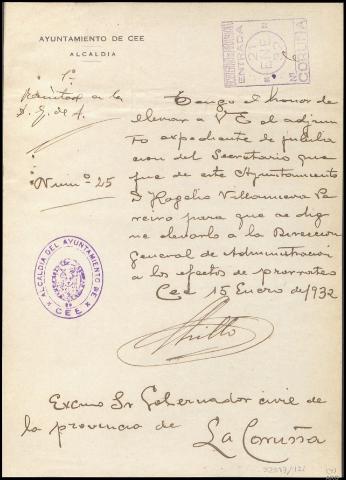 AYUNTAMIENTO DE CEE
ALCALDÍA
ENTRADA
ENE
CORUÑA
1ª
a la
Núm.º 25
Tengo el honor de
elevar a V E el adjun
to expediente de jubila
ción del Secretario que
fue de este Ayuntamiento
D Rogelio Villanueva Pa
reiro para que se dig
ne elevarlo a la Dirección
General de Administración
a los efectos de prorrateo
Cee 15 Enero de 1932
ALCALDIA DEL AYUNTAMIENTO DE
CEE
Excmo Sr Gobernador civil de
la provincia de
La Coruña